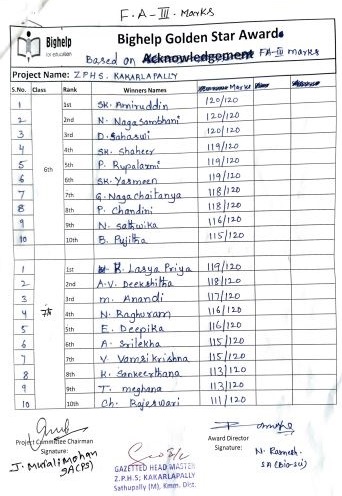 F.A-III. Marks
Bighelp
for education
Bighelp Golden Star Awards
Based on Acknowledgement FA-III marks
Project Name: Z.P.H.S. KAKARLAPALLY
S.No. Class Rank Winners Names Marks
1 1st SK. Amiruddin 120/120
2 2nd N. Nagasambhani 120/120
3 3rd D. Sahaswi 120/120
4 4th SK. Shaheer 119/120
5 5th P. Rupalaxmi 119/120
6th
6 6th SK. Yasmeen 119/120
7 7th G. Naga Chaitanya 118/120
8 8th P. Chandini 118/120
9 9th N. Sathwika 116/120
10 10th B. Pujitha 115/120
1 1st K. Lasya Priya 119/120
2 2nd A.V. Deekshitha 118/120
3 3rd M. Anandi 117/120
4 7th 4th N. Raghuram 116/120
5 5th E. Deepika 116/120
6 6th A. Srilekha 115/120
7 7th V. Vamsi Krishna 115/120
8 8th K. Sankeerthana 113/120
9 9th T. meghana 113/120
10 10th Ch. Rajeswari 111/120
Project Committee Chairman
Signature:
J. Muralimohan
SA(PS)
GAZETTED HEAD MASTER
Z.P.H.S; KAKARLAPALLY
Sathupally (M), Kmm. Dist.
Award Director
Signature:
N. Ramesh
SA (Bio-sci)